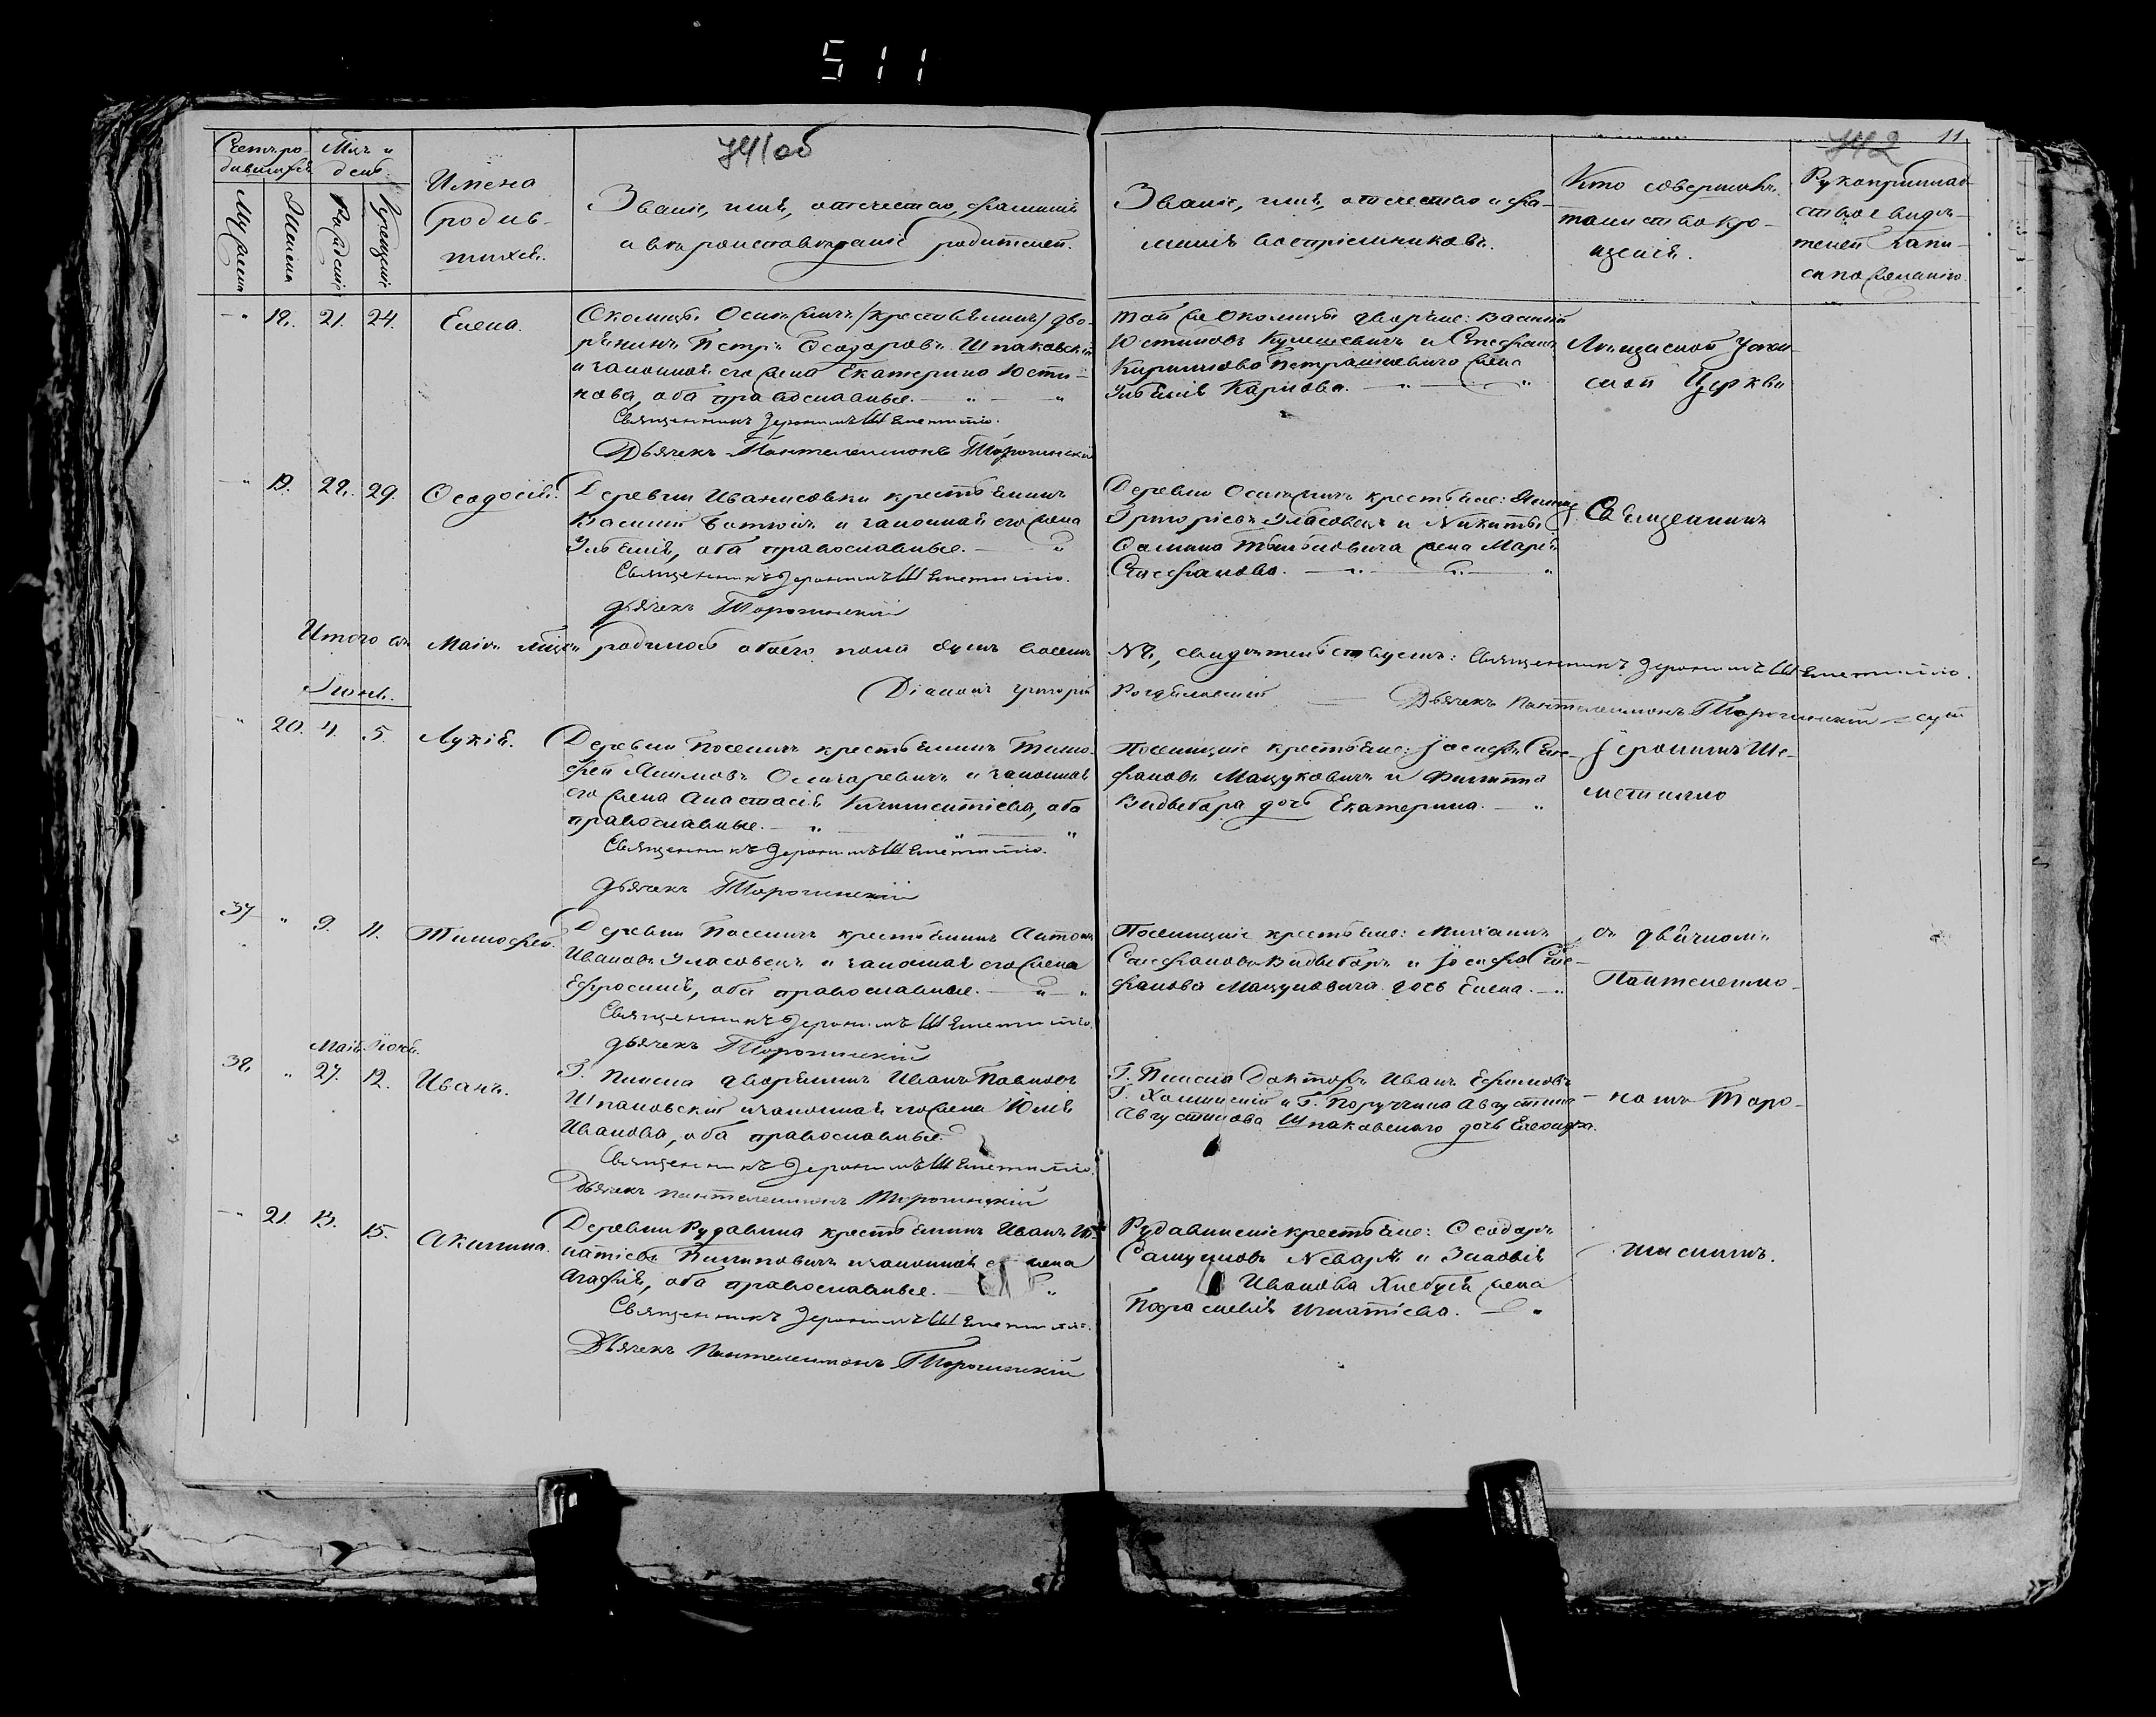 511
741об
742
11.
Счетъ ро-
дившихся
Мѣс. и
день
Мужеска
Женска
Рожденіе
Крещеніе
Имена
родив-
шихся.
Званіе, имя, отечество, фамилія
и вѣроисповѣданіе родителей.
Званіе, имя, отечество и фа-
милія воспріемниковъ.
Кто совершалъ
таинство кре-
щенія.
Рукоприклад-
ство свидѣ-
телей записи
по желанію.
" 18. 21. 24. Елена.
Околицы Осиничь (крестьянинъ) дво-
рянинъ Петръ Ѳеодоровъ Шпаковскій
и законная его жена Екатерина Юсти-
нова, оба православные.
Священникъ Іеронимъ Шеметилло.
Дьячекъ Пантелеимонъ Торочинскій
той же околицы дворяне: Василій
Юстиновъ Кулешевичъ и Стефана
Кириллова Петрашкевича жена
Ульянія Карлова.
Локащеской Успен-
ской Церкви
" 19. 22. 29. Ѳеодосія.
Деревни Иванисовки крестьянинъ
Василій Боткичъ и законная его жена
Ульянія, оба православные.
Священникъ Іеронимъ Шеметилло.
дьячекъ Торочинскій
Деревни крестьяне:
Григорьевъ Уласовецъ и Никиты
жена Марія
Стефанова.
Священникъ
Итого въ Маіѣ мѣсяцѣ родилось обоего пола душъ восемь
№, свидѣтельствуемъ: Священникъ Іеронимъ Шеметилло.
Діаконъ Григорій Роздяловскій
Дьячекъ Пантелеимонъ Торочинскій
Іюнь.
" 20. 4. 5. Лукія.
Деревни Посеничь крестьянинъ Тимо-
фей Якимовъ Олихаревичъ и законная
его жена Анастасія Климентіева, оба
православные.
Священникъ Іеронимъ Шеметилло.
дьячекъ Торочинскій
Посеницкіе крестьяне: Іосифъ Сте-
фановъ Мацукевичъ и Филиппа
Видыбора дочь Екатерина.
Іеронимъ Ше-
метилло
37 " 9. 11. Тимофей.
Деревни Посеничь крестьянинъ Антонъ
Ивановъ Уласовецъ и законная его жена
Ефросинія, оба православные.
Священникъ Іеронимъ Шеметилло.
дьячекъ Торочинскій
Посеницкіе крестьяне: Михаилъ
Стефановъ Видыборъ и Іосифа Сте-
фанова Мацукевича дочь Елена.
съ дьячкомъ
Пантелеимо-
Май. Іюнь.
38. " 27. 12. Иванъ.
Г. Пинска дворянинъ Иванъ Павловъ
Шпаковскій и законная его жена Юлія
Иванова, оба православные
Священникъ Іеронимъ Шеметилло.
Дьячекъ Пантелеимонъ Торочинскій
Г. Пинска Докторъ Иванъ Ефимовъ
Г. Холмскій и Г. Поручика Августина
Августинова Шпаковскаго дочь Елеонора.
номъ Торо-
" 21. 13. 15. Акилина.
Деревни Рудавина крестьянинъ Иванъ Иг-
натіевъ Пилиповичъ и законная его жена
Агафія, оба православные.
Священникъ Іеронимъ Шеметилло.
Дьячекъ Пантелеимонъ Торочинскій
Рудавинскіе крестьяне: Ѳеодоръ
Самуиловъ и Зиновія
Иванова Хлебуся жена
Параскевія Игнатіева.
чинскимъ.